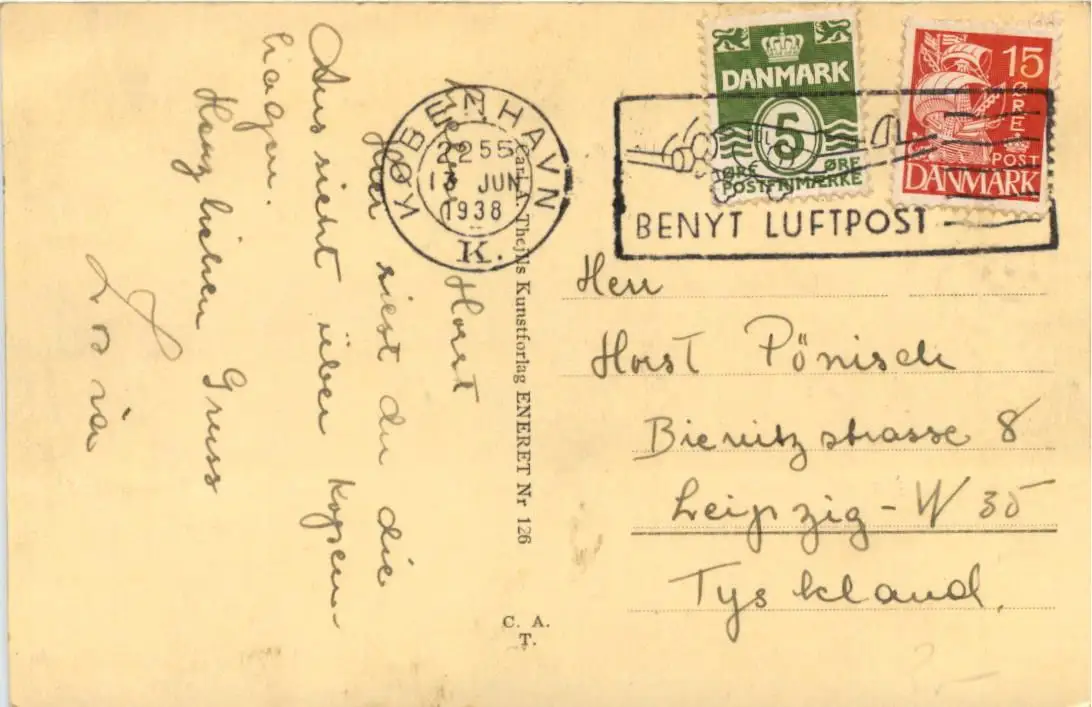 Lieber Horst
Hier siest du die
Aussicht über Kopen
hagen.
Herzlichen Gruss
KØBENHAVN
22 55
13 JUN
1938
K.
DANMARK
5
ØRE ØRE
POSTFRIMÆRKE
15
ØRE
POST
DANMARK
BENYT LUFTPOST
Carl A. Thejlls Kunstforlag ENERET Nr 126
C. A. T.
Herr
Horst Pönisch
Bienitzstrasse 8
Leipzig - W 35
Tyskland.